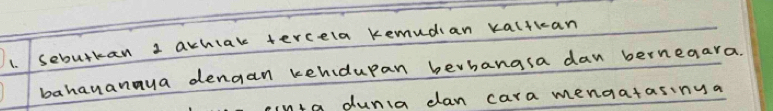 1. Sebutkan 2 akhlak tercela kemudian kaitkan
bahayannya dengan kehidupan berbangsa dan bernegara.
cinta dunia dan cara mengatasinya